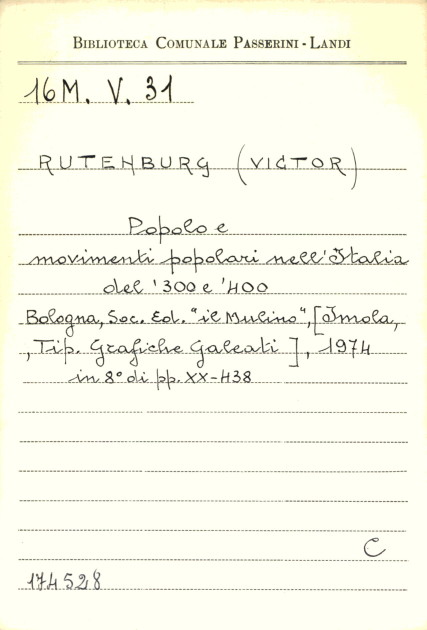 BIBLIOTECA COMUNALE PASSERINI - LANDI
16M. V. 31
RUTENBURG (VICTOR)
Popolo e
movimenti popolari nell'Italia
del '300 e '400
Bologna, Soc. Ed. "il Mulino", [Imola,
, Tip. Grafiche Galeati], 1974
in 8° di pp. XX-438
C
174528